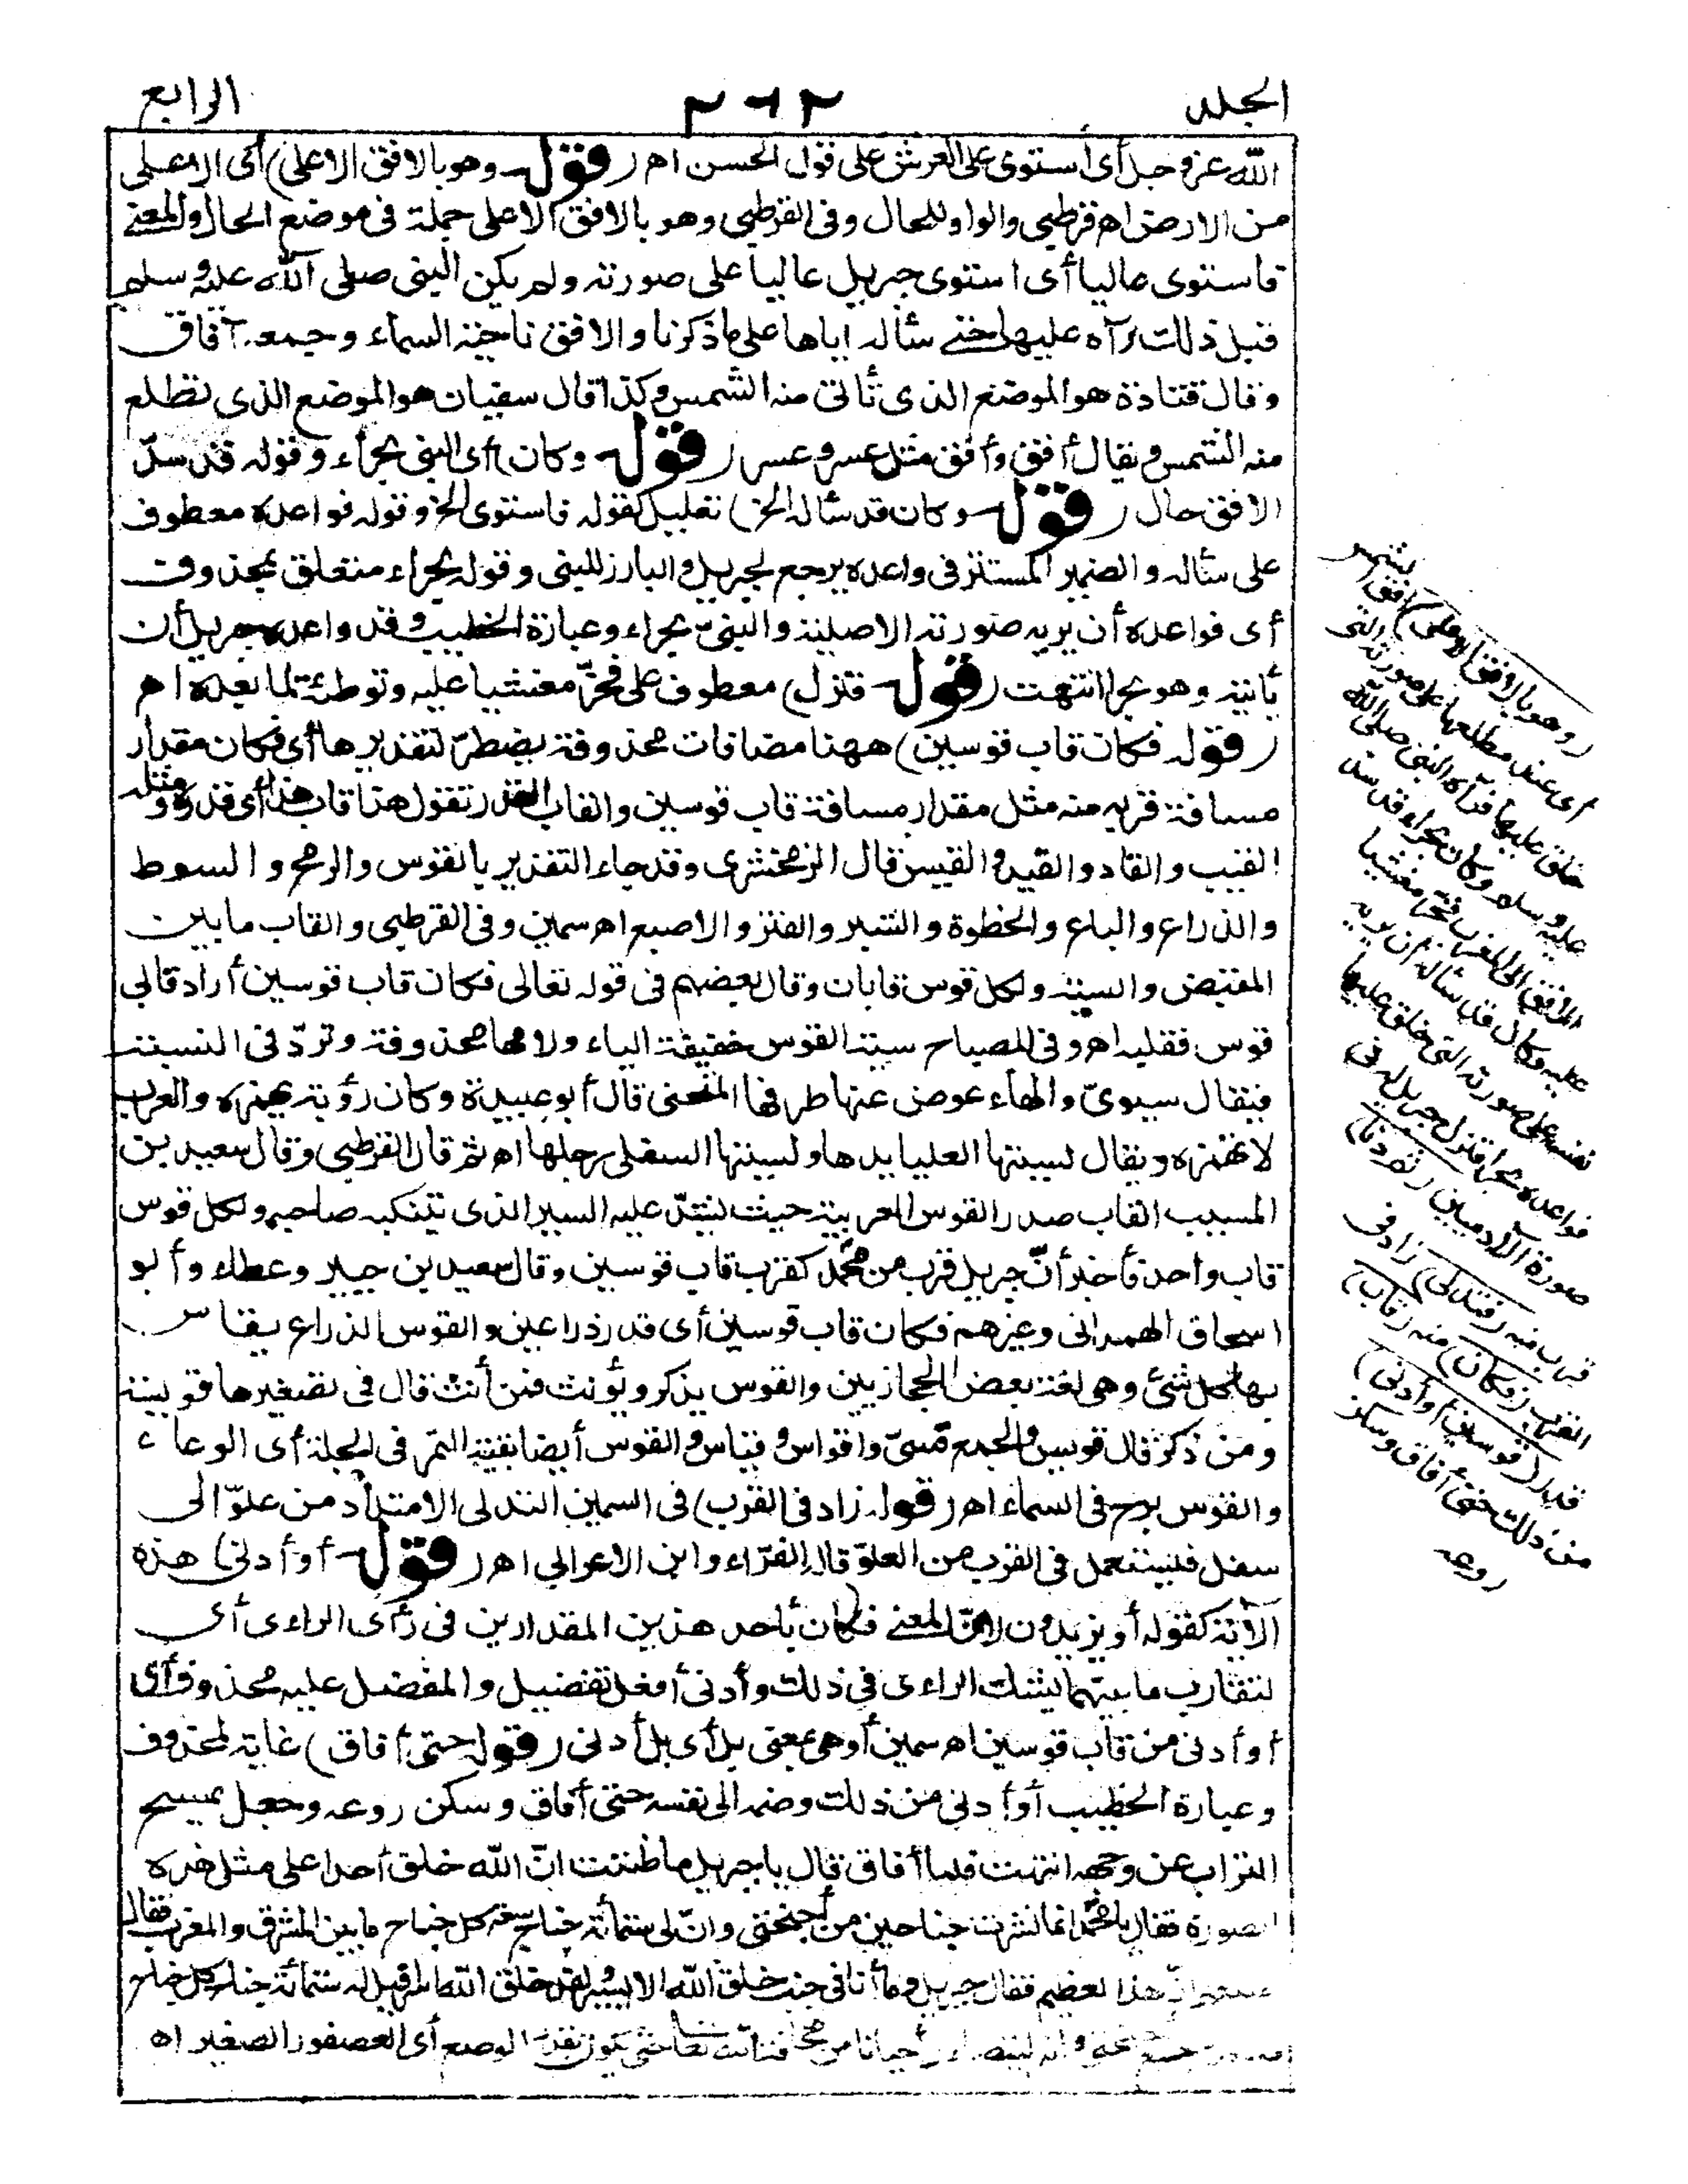 الجلد ٢٦٢ الرابع
الله عز وجل أى استوى على العرش على قول الحسن اهـ (قوله وهو بالافق الاعلى) أى الاعلى
من الارض اهـ قرطبى والواو للحال وفى القرطبى وهو بالافق الاعلى جملة فى موضع الحال والمعنى
فاستوى عاليا أى استوى جبريل عاليا على صورته ولم يكن النبى صلى الله عليه وسلم
قبل ذلك يراه عليها حتى سأله اياها على ما ذكرنا والافق ناحية السماء وجمعه آفاق
وقال قتادة هو الموضع الذى تأتى منه الشمس وكذا قال سفيان هو الموضع الذى تطلع
منه الشمس ويقال أفق وأفق مثل عسر وعسر (قوله وكان) أى النبى بحراء وقوله قد سدّ
الافق حال (قوله وكان قد سأله الخ) تعليل لقوله فاستوى الخ وقوله فواعده معطوف
على سأله والضمير المستتر فى واعده يرجع لجبريل والبارز للنبى وقوله بحراء متعلق بمحذوف
أى فواعده أن يريه صورته الاصلية والنبىّ بحراء وعبارة الخطيب وقد واعده جبريل أن
يأتيه وهو بحرا انتهت (قوله فنزل) معطوف على فخرّ مغشيا عليه وتوطئة لما بعده اهـ
(قوله فكان قاب قوسين) ههنا مضافات محذوفة يضطرّ لتقديرها أى فكان مقدار
مسافة قربه منه مثل مقدار مسافة قاب قوسين والقاب القدر تقول هذا قاب هذا أى قدره ومثله
القيب والقاد والقيد والقيس قال الزمخشرى وقد جاء التقدير بالقوس والرمح والسوط
والذراع والباع والخطوة والشبر والفتر والاصبع اهـ سمين وفى القرطبى والقاب ما بين
المقبض والسية ولكل قوس قابان وقال بعضهم فى قوله تعالى فكان قاب قوسين أراد قابى
قوس فقلبه اهـ وفى المصباح سية القوس خفيفة الياء ولامها محذوفة وتردّ فى النسبة
فيقال سيوىّ والهاء عوض عنها طرفها المنحنى قال أبو عبيدة وكان رؤبة يهمزه والعرب
لا تهمزه ويقال لسيتها العليا يدها ولسيتها السفلى رجلها اهـ ثم قال القرطبى وقال سعيد بن
المسيب القاب صدر القوس العربية حيث يشدّ عليه السير الذى يتنكبه صاحبه ولكل قوس
قاب واحد فأخبر أنّ جبريل قرب من محمد كقرب قاب قوسين وقال سعيد بن جبير وعطاء وأبو
اسحاق الهمدانى وغيرهم فكان قاب قوسين أى قدر ذراعين والقوس الذراع يقاس
بها كل شئ وهى لغة بعض الحجازيين والقوس يذكر ويؤنث فمن أنث قال فى تصغيرها قويسة
ومن ذكر قال قويس والجمع قسىّ واقواس وقياس والقوس أيضا بقية التمر فى الجلة أى الوعاء
والقوس برج فى السماء اهـ (قوله زاد فى القرب) فى السمين التدلى الامتداد من علوّ الى
سفل فيستعمل فى القرب من العلوّ قاله الفرّاء وابن الاعرابى اهـ (قوله أو أدنى) هذه
الآية كقوله أو يزيدون لانّ المعنى فكان بأحد هذين المقدارين فى رأى الراءى أى
لتقارب ما بينهما يشك الراءى فى ذلك وأدنى أفعل تفضيل والمفضل عليه محذوف أى
أو أدنى من قاب قوسين اهـ سمين أو هى بمعنى بل أى بل أدنى (قوله حتى أفاق) غاية لمحذوف
وعبارة الخطيب أو أدنى من ذلك وضمه الى نفسه حتى أفاق وسكن روعه وجعل يمسح
التراب عن وجهه انتهت فلما أفاق قال يا جبريل ما ظننت انّ الله خلق أحدا على مثل هذه
الصورة فقال يا محمد انما نشرت جناحين من أجنحتى وانّ لى ستمائة جناح سعة كل جناح ما بين المشرق والمغرب فقال
انّ هذا لعظيم فقال جبريل وما أنا فى جنب خلق الله الا يسير ولقد خلق الله اسرافيل له ستمائة جناح كل جناح
أحيانا من مخافة الله تعالى حتى يكون بقدر الوصع أى العصفور الصغير اهـ
(وهو بالافق الاعلى) افق الشمس
أى عند مطلعها على صورته التى
خلق عليها فرآه النبى صلى الله
عليه وسلم وكان بحراء قد سد
الافق الى المغرب فخرّ مغشيا
عليه وكان قد سأله أن يريه
نفسه على صورته التى خلق عليها
فواعده بحراء فنزل جبريل له فى
صورة الآدميين (ثم دنا)
قرب منه (فتدلى) زاد فى
القرب (فكان) منه (قاب)
قدر (قوسين أو أدنى)
من ذلك حتى أفاق وسكن
روعه